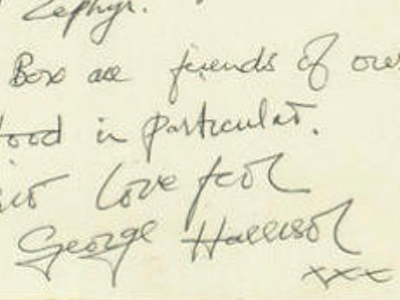 Zephyr.
Box are friends of ours
in particular.
Love from
George Harrison
xxx